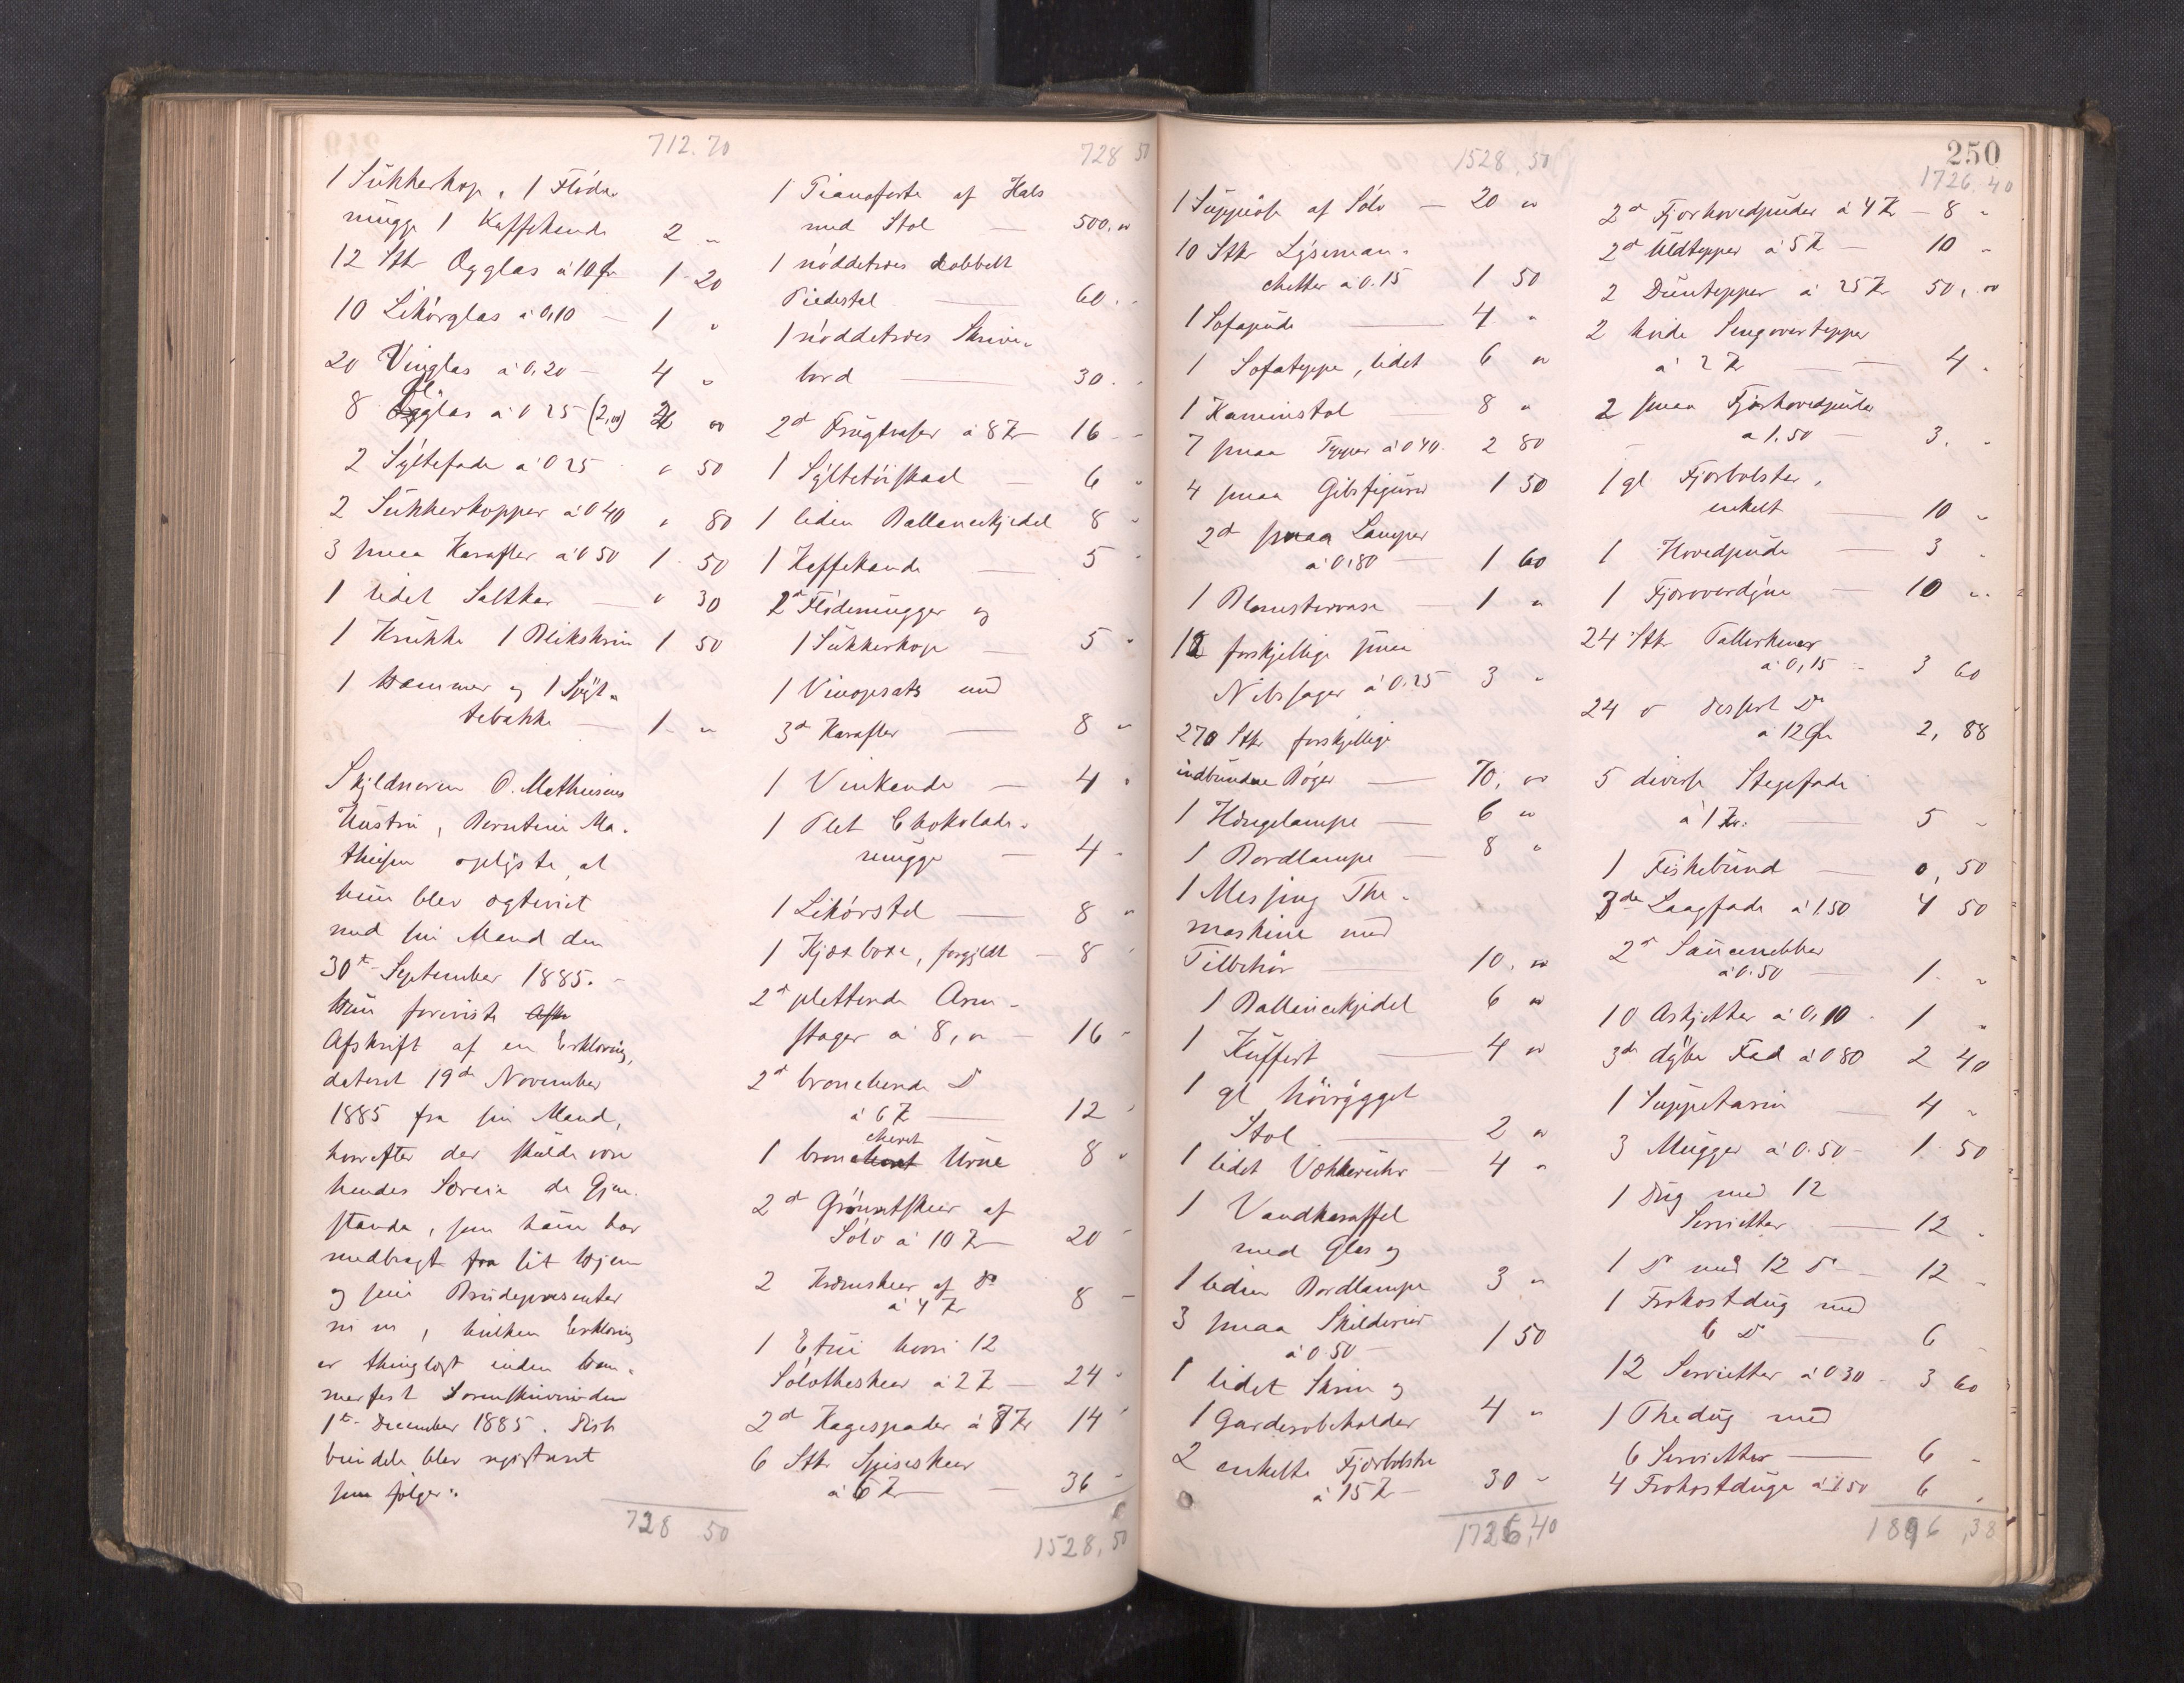 712.70
1 Sukkerkop, 1 Fløde-
mugge 1 Kaffekande 2 "
12 Stk Ægglas à 10 Ør 1 20
10 Likørglas à 0,10 — 1 "
20 Vinglas à 0,20 — 4 "
8 Ølglas à 0 25 (2,00) 2 00
2 Syltefade à 0 25 " 50
2 Sukkerkopper à 0 40 " 80
3 smaa Karafler à 0 50 1 50
1 lidet Saltkar — " 30
1 Krukke 1 Blikskrin 1 50
1 Hammer og 1 Spyt-
tebakke — 1 "
Skyldneren O. Mathisens
Hustru, Berntine Ma-
thisen oplyste, at
hun blev ægteviet
med sin Mand den
30te September 1885. -
Hun foreviste Afsk
Afskrift af en Erklæring,
dateret 19de November
1885 fra sin Mand,
hvorefter der skulde være
hendes Særeie de Gjen-
stande, som hun har
medbragt fra sit Hjem
og sine Brudepresenter
m m, hvilken Erklæring
er thinglæst inden Ham-
merfest Sorenskriveri den
1te December 1885. Disse
Eiendele blev registreret
som følger:
728 50
728 50
1 Pianoforte af Hals
med Stol — 500. 00
1 nøddetræes dobbelt
Piedestal — 60. "
1 nøddetræes Skrive-
bord — 30. "
2d Frugtvaser à 8 Kr 16 -
1 Syltetøiskaal — 6 "
1 liden Ballancekjedel 8 "
1 Kaffekande — 5 "
2d Flødemugger og
1 Sukkerkop — 5 "
1 Vinopsats med
3d Karafler — 8 "
1 Vinkande — 4 "
1 Plet Chokolade-
mugge — 4 -
1 Likørstel — 8 "
1 Kjæxboxe, forgyldt — 8 "
2d pletterede Arm-
stager à 8,00 — 16 -
2d broncherede Do
à 6 Kr — 12 "
1 broncheret Urne 8 "
2d Grønsatskeer af
Sølv à 10 Kr 20 -
2 Kremskeer af Do
à 4 Kr 8 -
1 Etui hvori 12
Sølvtheskeer à 2 Kr — 24 -
2d Kagespader à 7 Kr 14 "
6 Stk Spiseskeer
à 6 Kr — 36 -
1528,50
1528,50
1 Suppeøse af Sølv — 20 00
10 Stk Lyseman-
chetter à 0.15 1 50
1 Sofapude — 4 "
1 Sofateppe, lidet 6 00
1 Kaminstol 8 "
7 smaa Tepper à 0 40. 2 80
4 smaa Gibsfigurer 1 50
2d smaa Lamper
à 0,80 — 1 60
1 Blomstervase — 1 "
12 forskjellige smaa
Nibssager à 0.25 3 "
270 Stk forskjellige
indbundne Bøger — 70, 00
1 Hængelampe — 6 00
1 Bordlampe — 8 "
1 Messing The-
maskine med
Tilbehør — 10, 00
1 Ballancekjedel 6 00
1 Kuffert — 4 00
1 gl høirygget
Stol — 2 00
1 lidet Vækkeruhr — 4 "
1 Vandkaraffel
med Glas og
1 liden Bordlampe 3 "
3 smaa Skilderier
à 0 50 — 1 50
1 lidet Skrin og
1 Garderobeholder 4 "
2 enkelte Fjærbolstre
à 15 Kr — 30 -
1726,40
250
1726,40
2d Fjærhovedpuder à 4 Kr — 8 "
2d Uldtepper à 5 Kr — 10 -
2 Duntepper à 25 Kr 50, 00
2 hvide Sengovertepper
à 2 Kr — 4 "
2 smaa Fjærhovedpuder
à 1,50 — 3. "
1 gl Fjærbolster,
enkelt — 10 "
1 Hovedpude — 3 "
1 Fjæroverdyne — 10 "
24 Stk Tallerkener
à 0,15 - 3 60
24 " dessert Do
à 12 Øre 2, 88
5 diverse Stegefade
à 1 Kr. — 5 "
1 Fiskebund — 0, 50
3de Laagfade à 1.50 4 50
2d Saucenebber
à 0.50 — 1. "
10 Asjetter à 0,10 - 1 "
3de dybe Fad à 0 80 2 40
1 Suppeterin — 4 "
3 Mugger à 0.50 - 1. 50
1 Dug med 12
Servietter — 12 "
1 Do med 12 Do — 12 -
1 Frokostdug med
6 Do — 6 -
12 Servietter à 0 30 - 3 60
1 Thedug med
6 Servietter — 6 -
4 Frokostduge à 1 50 6 "
1896,38